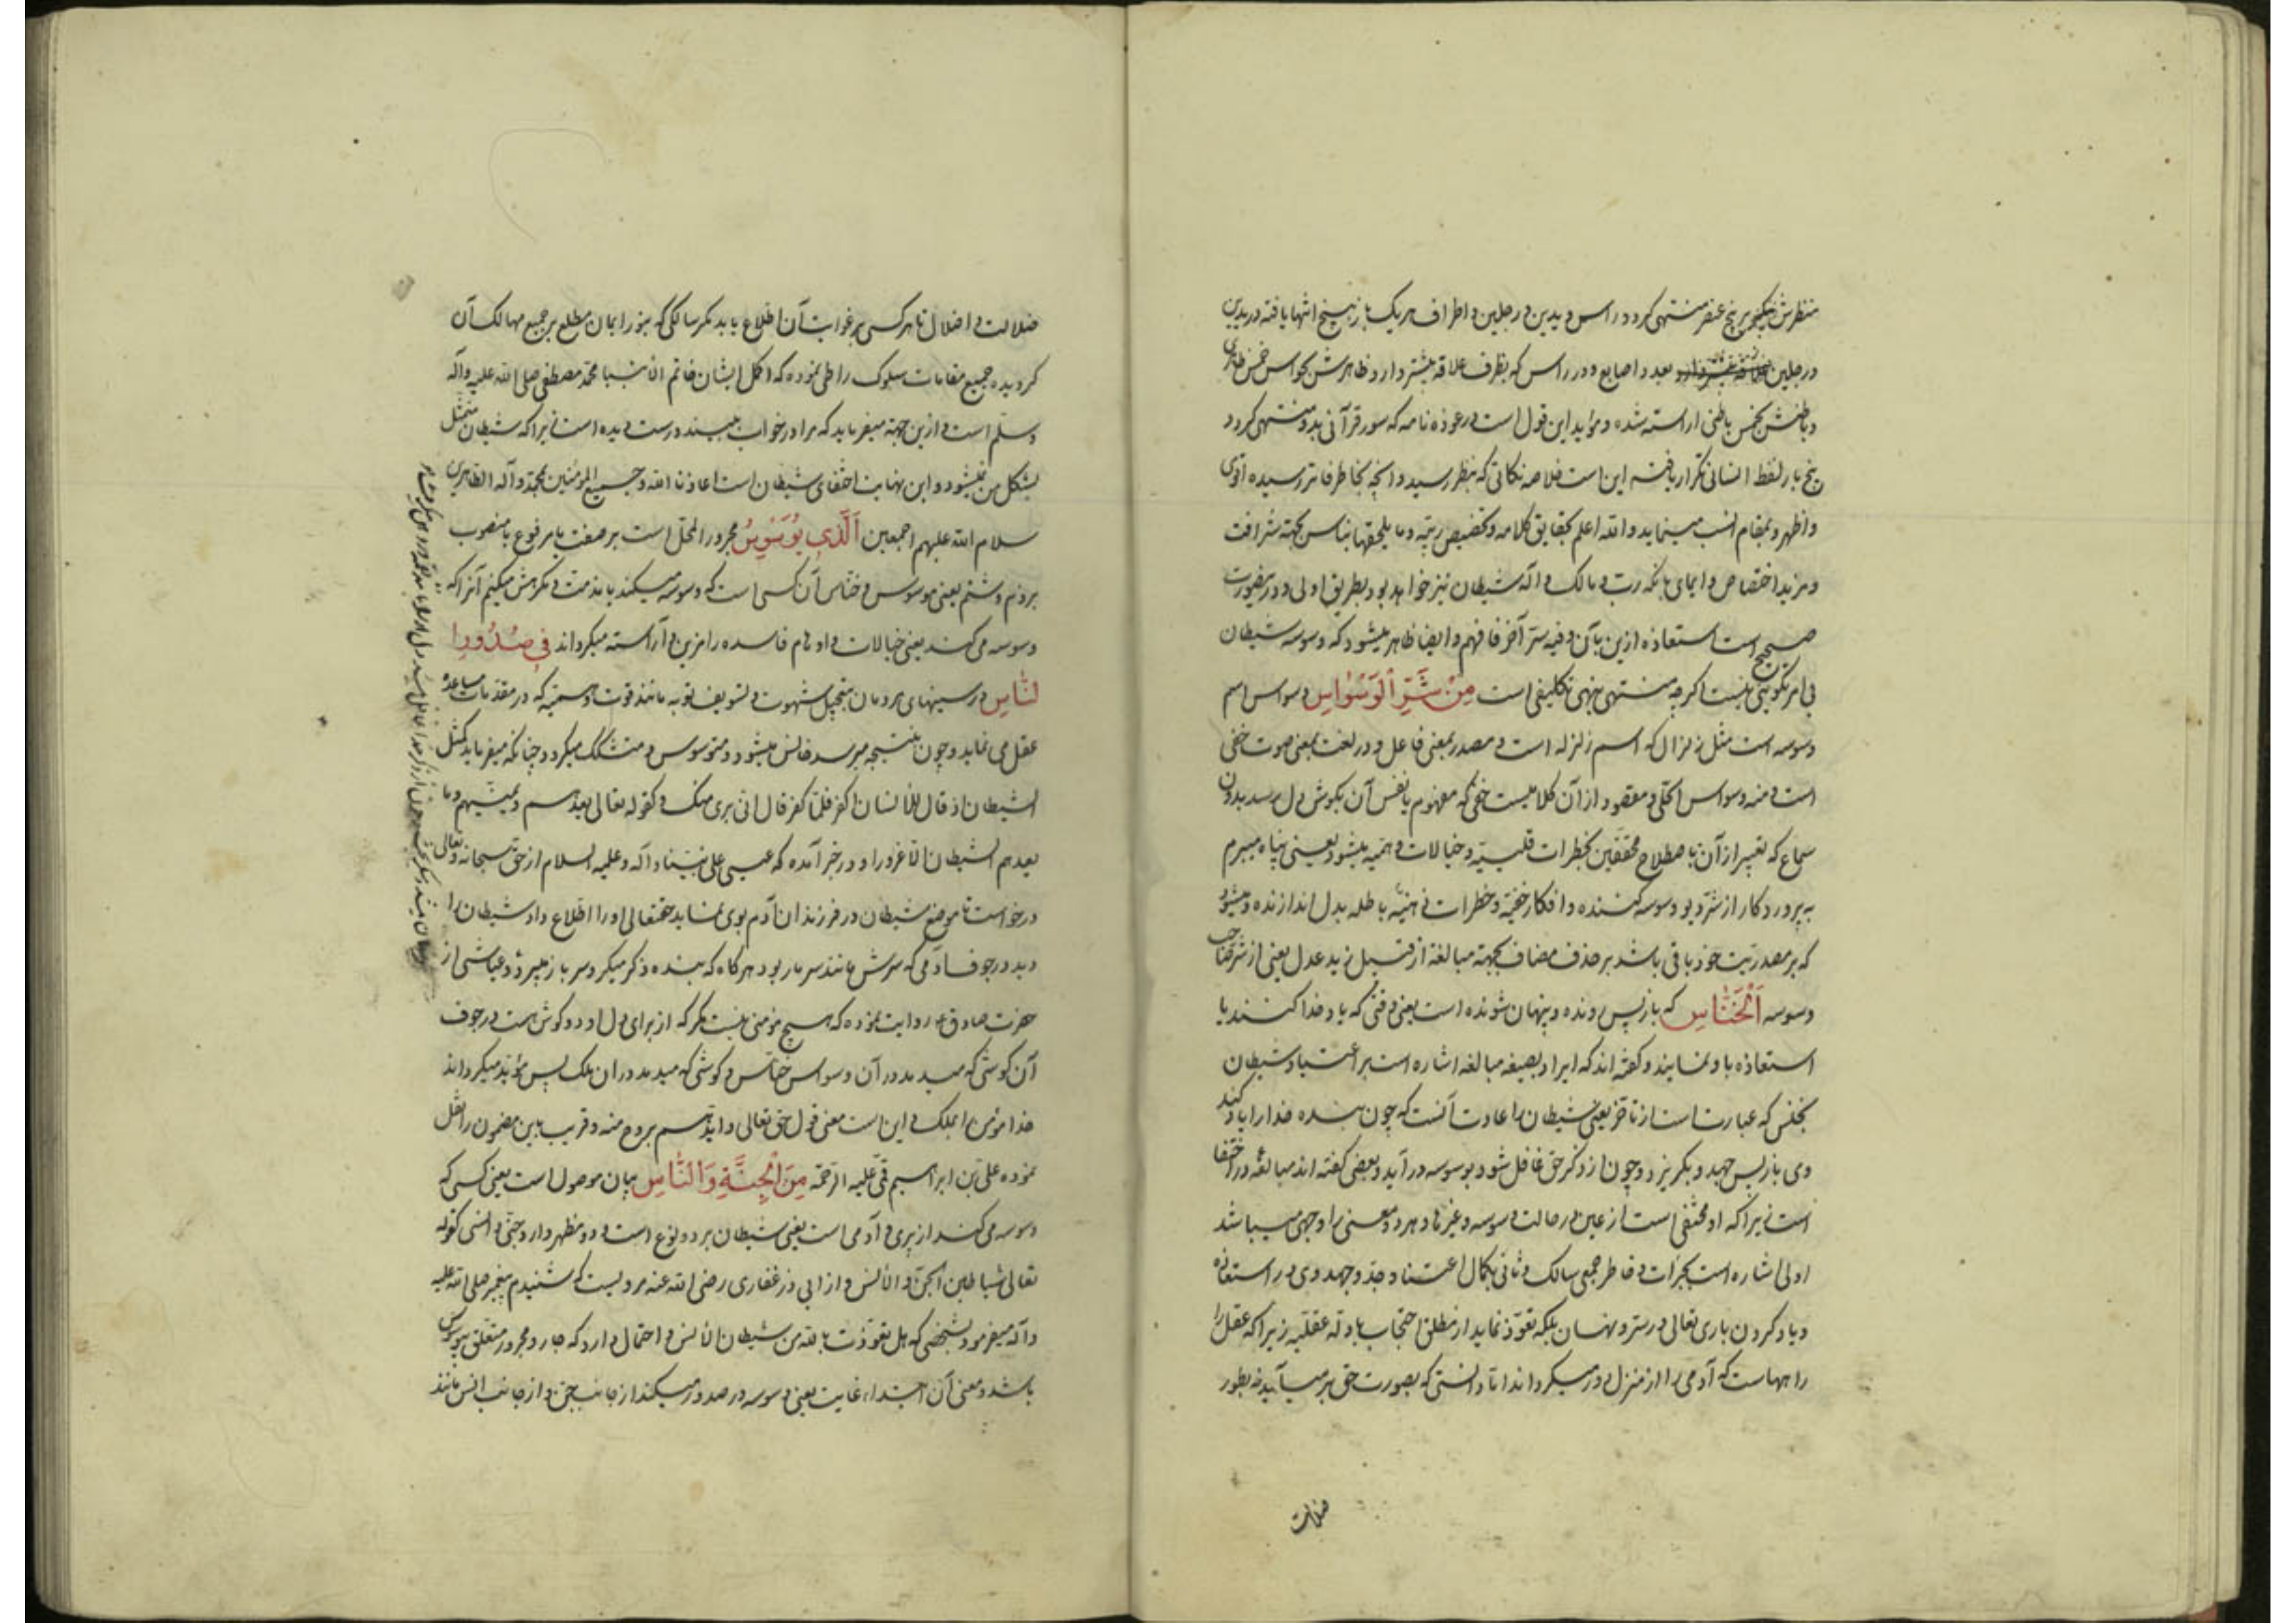 منتظرش نیکو بر پنج عنصر منتهی گردد راس و یدین و رجلین و اطراف هر یک باز به پنج انتها یافته در یدین
و رجلین بعدد اصابع و در راس که بظرف علاقه بیشتر دارد ظاهرش بحواس خمس ظاهری
و باطنش بخمس باطنی اراسته شده و مؤید این قول است در عوذه نامه که سور قرآنی بدو منتهی گردد
پنج بار لفظ انسانی تکرار یافته این است خلاصه نکاتی که بنظر رسید و انچه بخاطر فاتر رسیده اقوی
و اظهر و بمقام انسب مینماید و الله اعلم بحقایق کلامه و تخصیص ربیّه و ما یلحقها بناس بجهة شرافت
و مزید اختصاص و ایمای بانکه رب و مالک و اله شیطان نیز خواهد بود بطریق اولی و در ینصورت
صحیح است استعاذه ازین بآن و فیه سرّ آخر فافهم و ایضا ظاهر میشود که وسوسه شیطان
فی امر تکوینی نیست اگرچه منتهی بنهی تکلیفی است مِنْ شَرِّ الْوَسْوٰاسِ وسواس اسم
وسوسه است مثل زلزال که اسم زلزله است و مصدر بمعنی فاعل و در لغت بمعنی صوت خفی
است و منه وسواس الحلّی و مقصود از آن کلامیست خفی که مفهوم یا نفس آن بگوش دل برسد بدون
سماع که تعبیر از آن باصطلاح محققین بخطرات قلبیّه و خیالات وهمیّه میشود یعنی پناه میبرم
به پروردکار از شرّ دیو وسوسه کننده و افکار خفیّه و خطرات ذهنیّه باطله بدل اندازنده و میشود
که بر مصدریّت خود باقی باشد بر حذف مضاف بجهة مبالغة از قبیل زید عدل یعنی از شرّ صاحب
وسوسه اَلْخَنّٰاسِ که باز پس رونده و پنهان شونده است یعنی وقتی که یاد خدا کنند یا
استعاذه باو نمایند و گفته اند که ایراد بصیغه مبالغه اشاره است بر اعتیاد شیطان
بخنس که عبارت است از تأخر یعنی شیطان را عادت آنست که چون بنده خدا را یاد کند
وی باز پس جهد و بگریزد و چون از ذکر حق غافل شود بوسوسه درآید و بعضی گفته اند مبالغه در اختفا
است زیرا که او مختفی است از عین در حالت وسوسه و غیرها و هر دو معنی را وجهی میباشد
اولی اشاره است بجرأت و خاطر جمعی سالک و ثانی بکمال اعتنا و جدّ و جهد وی در استعاذه
و یاد کردن باری تعالی در ستر و نهان بلکه تعوّذ نماید از مطلق احتجاب بادلّه عقلیّه زیرا که عقل را
راهها است که آدمی را از منزل دور میگرداند اتا دانستی که بصورت حق بر میآید نه بطور
ضلالت
ضلالت و اضلال تا هر کسی بر غوایت آن اطلاع یابد مگر سالکی که بنور ایمان مطلع بر جمیع مهالک آن
گردیده جمیع مقامات سلوک را طی نموده که اکمل ایشان خاتم انبیا محمد مصطفی صلی الله علیه و آله
و سلّم است و ازین جهة میفرماید که مرا در خواب بیند درست دیده است زیرا که شیطان متمثل
بشکل من نمیشود و این نهایت اختفای شیطان است اعاذنا الله و جمیع المؤمنین بمحمّد و آله الطاهرین
سلام الله علیهم اجمعین اَلَّذِی یُوَسْوِسُ مجرور المحل است بر صفت یا مرفوع یا منصوب
بر ذم و شتم یعنی موسوس و خنّاس آن کسی است که وسوسه میکند یا مذمت و نکوهش میکنم آنرا که
وسوسه می کند یعنی خیالات و اوهام فاسده را مزین و آراسته میگرداند فِی صُدُورِ ا
لنّٰاسِ در سینهای مردمان بتخییل شهوت و تسویف توبه مانند قوت وهمیّه که در مقدمات مساعدهٔ
عقل می نماید و چون بنتیجه میرسد خانس میشود و متوسوس و متشکک میگردد چنانکه میفرماید کمثل
الشیطان اذ قال للأنسان اکفر فلمّا کفر قال انی بریٔ منک و کقوله تعالی یعدهم و یمنّیهم و ما
یعدهم الشیطان الّا غرورا و در خبر آمده که عیسی علی نبیّنا و آله و علیه السلام از حق سبحانه و تعالی
درخواست تا موضع شیطان در فرزندان آدم بوی نماید حقتعالی او را اطلاع داد شیطان را
دید در جوف آدمی که سرش مانند سر مار بود هر گاه که بنده ذکر میکرد سر باز میبرد و عیاشی از
حضرت صادق ع روایت نموده که هیچ مؤمنی نیست مگر که از برای دل او دو گوش است در جوف
آن گوشی که میدمد در آن وسواس خنّاس و گوشی که میدمد در ان ملک پس مؤید میگرداند
خدا مؤمن را بملک و این است معنی قول حق تعالی و ایّدهم بروح منه و قریب باین مضمون را نقل
نموده علی بن ابراهیم قمّی علیه الرّحمة مِنَ الْجِنَّةِ وَ النّٰاسِ بیان موصول است یعنی کسی که
وسوسه می کند از پری و آدمی است یعنی شیطان بر دو نوع است و دو مظهر دارد جنّی و انسی کقوله
تعالی شیاطین الجن و الأنس و از ابی ذر غفاری رضی الله عنه مرویست که شنیدم پیغمبر صلی الله علیه
و آله میفرمود بشخصی که هل تعوّذت بالله من شیطان الأنس و احتمال دارد که جار و مجرور متعلق بیوسوس
باشد و معنی آن ابتداء غایت یعنی وسوسه در صدور میکند از جانب جن و از جانب انس مانند